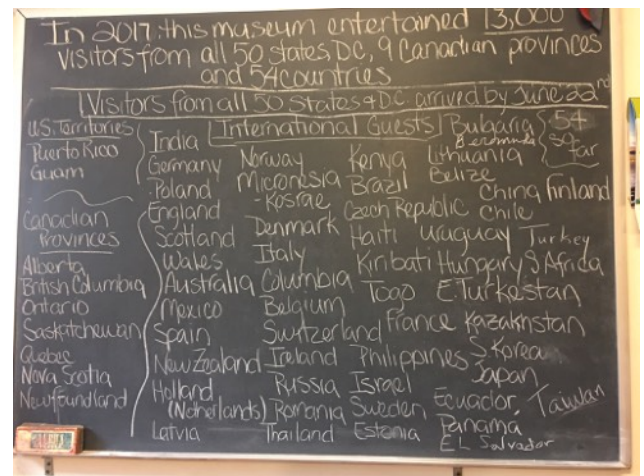 In 2017 this museum entertained 13,000
visitors from all 50 states, DC, 9 Canadian provinces
and 54 countries
Visitors from all 50 states & D.C. arrived by June 22nd
U.S. Territories
Puerto Rico
Guam
Canadian
Provinces
Alberta
British Columbia
Ontario
Saskatchewan
Quebec
Nova Scotia
Newfoundland
International Guests
India
Germany
Poland
England
Scotland
Wales
Australia
Mexico
Spain
New Zealand
Holland
(Netherlands)
Latvia
Norway
Micronesia
-Kosrae
Denmark
Italy
Columbia
Belgium
Switzerland
Ireland
Russia
Romania
Thailand
Kenya
Brazil
Czech Republic
Haiti
Kiribati
Togo
France
Philippines
Israel
Sweden
Estonia
Bulgaria
Bermuda
Lithuania
Belize
China Finland
Chile
Uruguay Turkey
Hungary S Africa
E. Turkestan
Kazakhstan
S. Korea
Japan
Ecuador Taiwan
Panama
EL Salvador
54
so
far